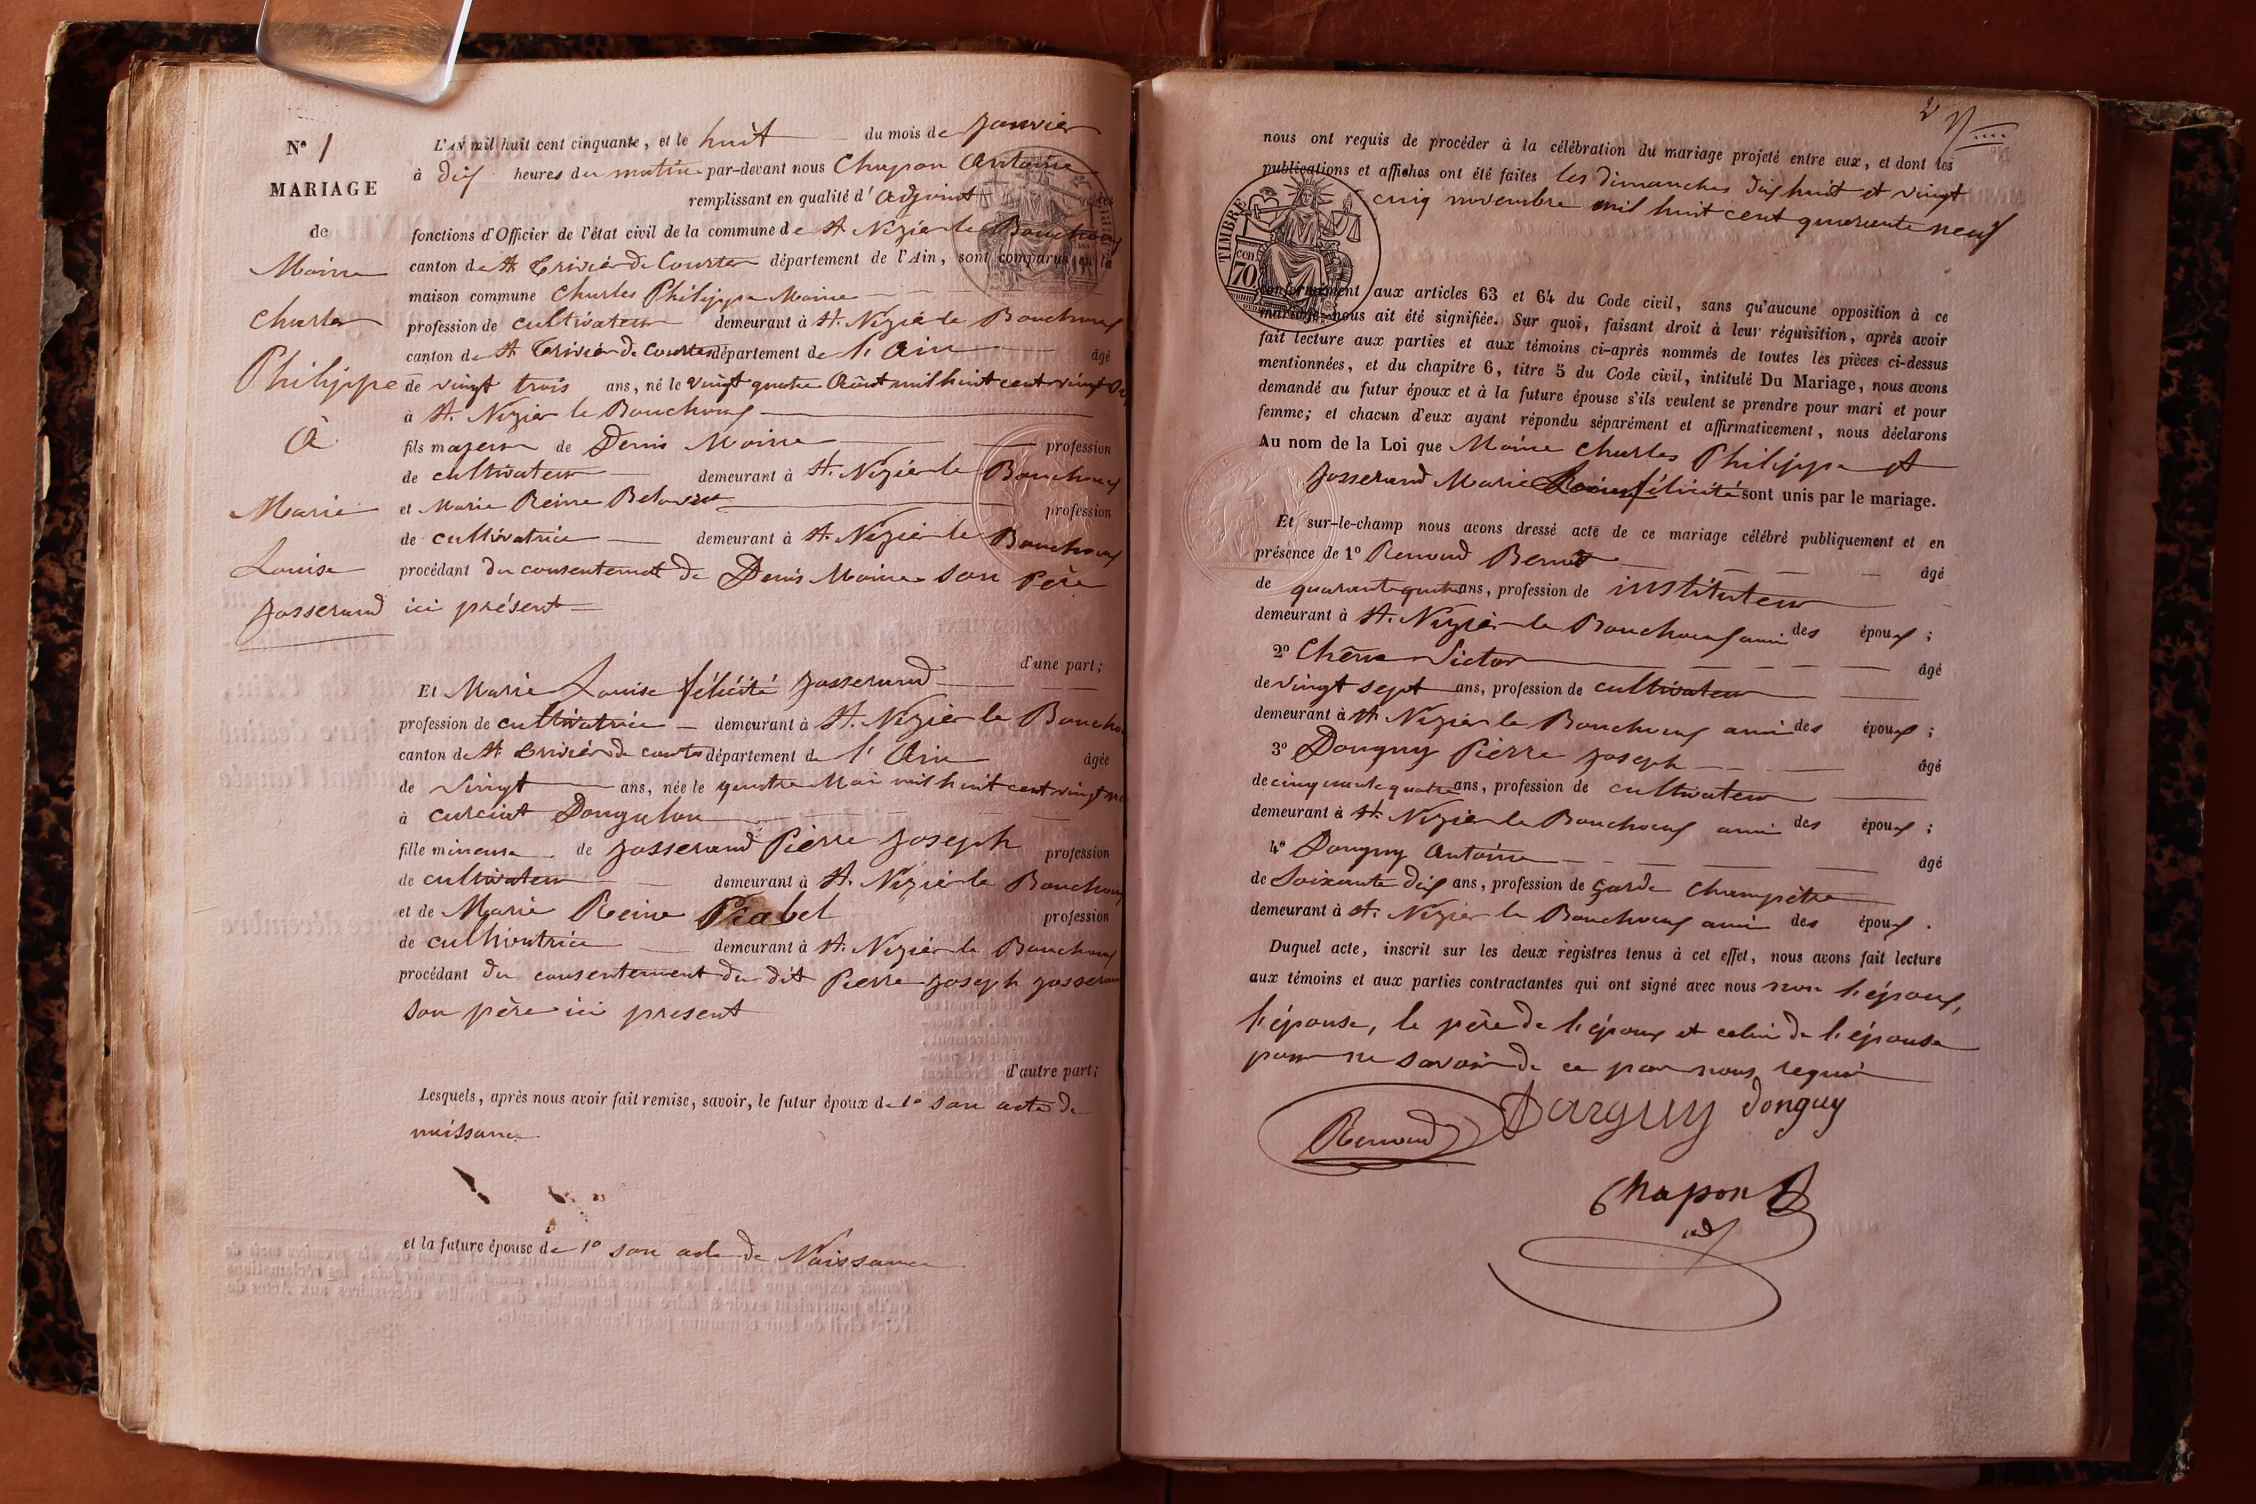 N° 1
MARIAGE
de
Moine
Charles
Philippe
à
Marie
Louise
Josserand
L'AN mil huit cent cinquante, et le huit du mois de Janvier
à dix heures du matin par-devant nous Chapon Antoine
remplissant en qualité d'Adjoint les
fonctions d'Officier de l'état civil de la commune de St Nizier le Bouchoux
canton de St Trivier de Courtes département de l'Ain, sont comparus en la
maison commune Charles Philippe Moine
profession de cultivateur demeurant à St. Nizier le Bouchoux
canton de St Trivier de Courtes département de l'Ain âgé
de vingt trois ans, né le vingt quatre Août mil huit cent vingt
à St. Nizier le Bouchoux
fils majeur de Denis Moine profession
de cultivateur demeurant à St. Nizier le Bouchoux
et Marie Reine profession
de cultivatrice demeurant à St. Nizier le Bouchoux
procédant du consentement de Denis Moine son Père
ici présent
d'une part;
Et Marie Louise félicité Josserand
profession de cultivatrice demeurant à St. Nizier le Bouchoux
canton de St Trivier de Courtes département de l'Ain âgée
de Vingt ans, née le quatre Mai mil huit cent vingt
à Curciat Dongalon
fille mineure de Josserand Pierre Joseph profession
de cultivateur demeurant à St. Nizier le Bouchoux
et de Marie Reine Piabel profession
de cultivatrice demeurant à St. Nizier le Bouchoux
procédant du consentement du dit Pierre Joseph Josserand
son père ici present
d'autre part;
Lesquels, après nous avoir fait remise, savoir, le futur époux de 1° son acte de
naissance
et la future épouse de 1° son acte de Naissance
2
nous ont requis de procéder à la célébration du mariage projeté entre eux, et dont les
publications et affiches ont été faites les dimanches dix huit et vingt
cinq novembre mil huit cent quarante neuf
TIMBRE
70 cen
conformément aux articles 63 et 64 du Code civil, sans qu'aucune opposition à ce
mariage nous ait été signifiée. Sur quoi, faisant droit à leur réquisition, après avoir
fait lecture aux parties et aux témoins ci-après nommés de toutes les pièces ci-dessus
mentionnées, et du chapitre 6, titre 5 du Code civil, intitulé Du Mariage, nous avons
demandé au futur époux et à la future épouse s'ils veulent se prendre pour mari et pour
femme; et chacun d'eux ayant répondu séparément et affirmativement, nous déclarons
Au nom de la Loi que Moine Charles Philippe et
Josserand Marie félicité sont unis par le mariage.
Et sur-le-champ nous avons dressé acte de ce mariage célébré publiquement et en
présence de 1° Renoud Benoit âgé
de quarante quatre ans, profession de instituteur
demeurant à St. Nizier le Bouchoux ami des époux;
2° Chêne Victor âgé
de vingt sept ans, profession de cultivateur
demeurant à St Nizier le Bouchoux ami des époux;
3° Donguy Pierre Joseph âgé
de cinquante quatre ans, profession de cultivateur
demeurant à St. Nizier le Bouchoux ami des époux;
4° Donguy Antoine âgé
de Soixante dix ans, profession de garde champêtre
demeurant à St. Nizier le Bouchoux ami des époux.
Duquel acte, inscrit sur les deux registres tenus à cet effet, nous avons fait lecture
aux témoins et aux parties contractantes qui ont signé avec nous non l'époux,
l'épouse, le père de l'époux et celui de l'épouse
pour ne savoir de ce par nous requis
Renoud Donguy donguy
Chapon
adj